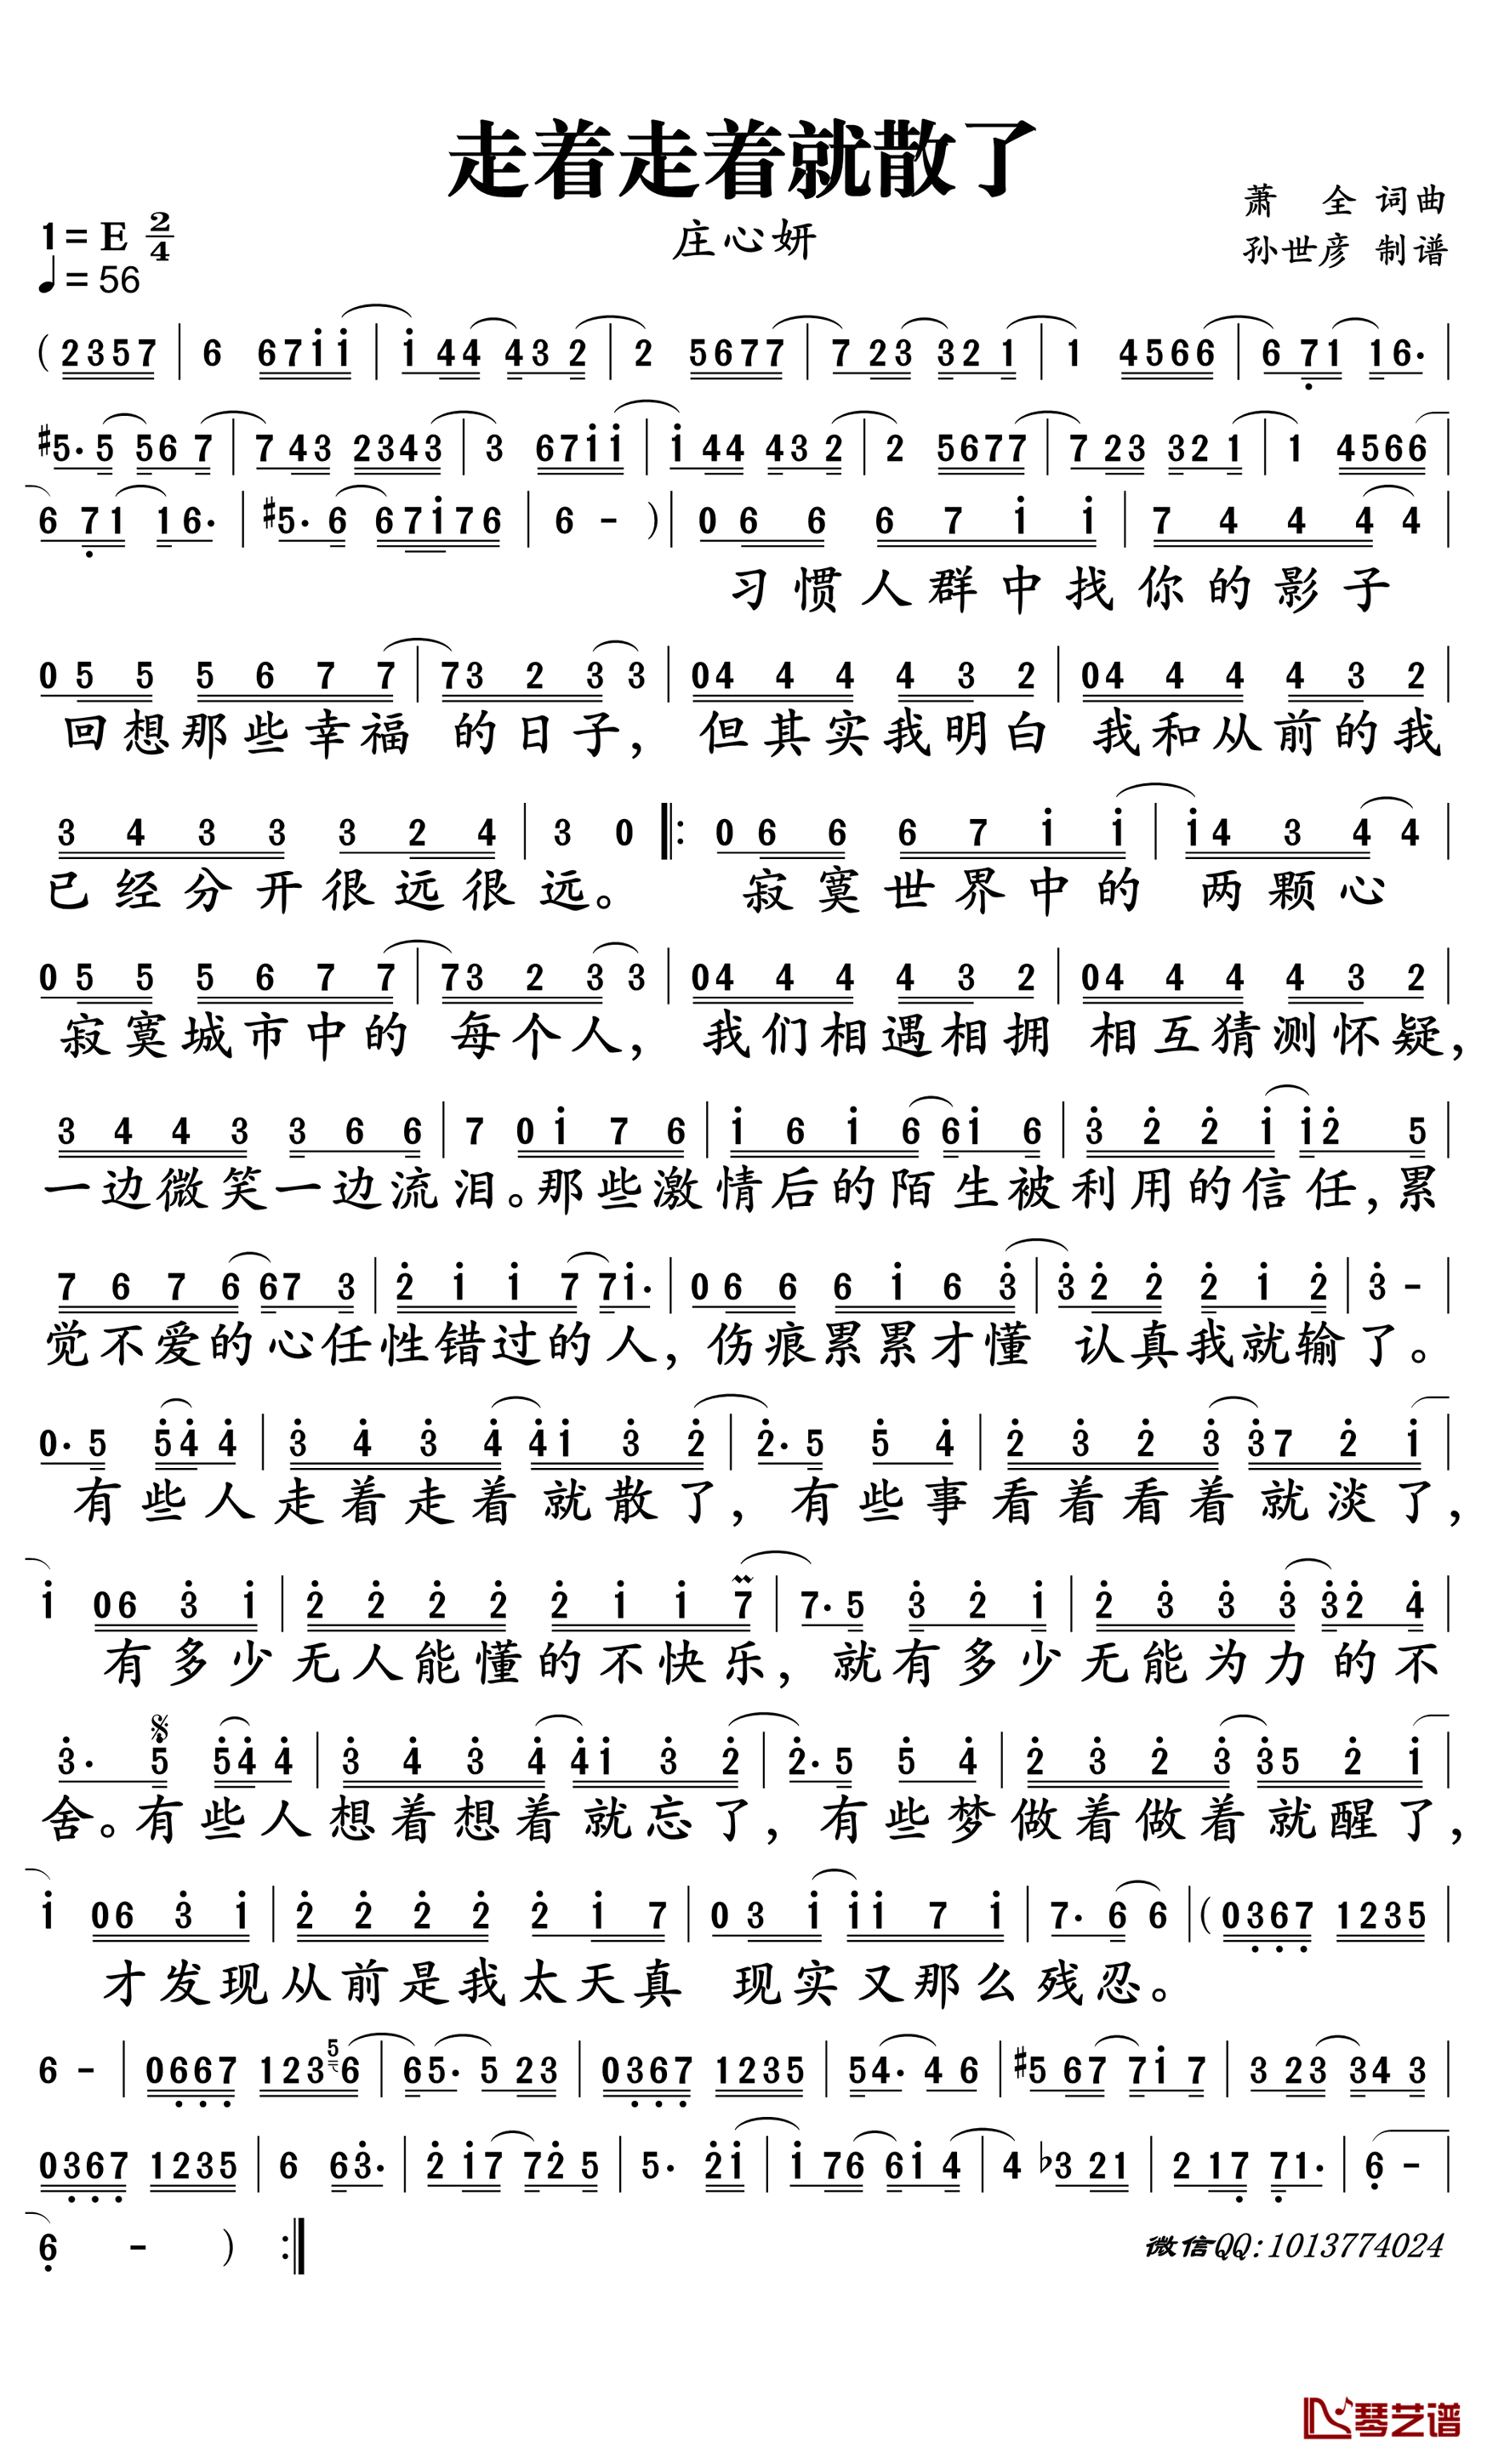 走着走着就散了
萧 全 词曲
1= E 2/4
庄心妍
孙世彦 制谱
♩= 56
( 2 3 5 7 | 6 6 7 1 1 | 1 4 4 4 3 2 | 2 5 6 7 7 | 7 2 3 3 2 1 | 1 4 5 6 6 | 6 7 1 1 6. |
#5. 5 5 6 7 | 7 4 3 2 3 4 3 | 3 6 7 1 1 | 1 4 4 4 3 2 | 2 5 6 7 7 | 7 2 3 3 2 1 | 1 4 5 6 6 |
6 7 1 1 6. | #5. 6 6 7 1 7 6 | 6 - ) | 0 6 6 6 7 1 1 | 7 4 4 4 4 |
习惯人群中找你的影子
0 5 5 5 6 7 7 | 7 3 2 3 3 | 0 4 4 4 4 3 2 | 0 4 4 4 4 3 2 |
回想那些幸福 的日子, 但其实我明白 我和从前的我
3 4 3 3 3 2 4 | 3 0 |: 0 6 6 6 7 1 1 | 1 4 3 4 4 |
已经分开很远很远。 寂寞世界中的 两颗心
0 5 5 5 6 7 7 | 7 3 2 3 3 | 0 4 4 4 4 3 2 | 0 4 4 4 4 3 2 |
寂寞城市中的 每个人, 我们相遇相拥 相互猜测怀疑,
3 4 4 3 3 6 6 | 7 0 1 7 6 | 1 6 1 6 6 1 6 | 3 2 2 1 1 2 5 |
一边微笑一边流泪。那些激情后的陌生被利用的信任,累
7 6 7 6 6 7 3 | 2 1 1 7 7 1. | 0 6 6 6 1 6 3 | 3 2 2 2 1 2 | 3 - |
觉不爱的心任性错过的人, 伤痕累累才懂 认真我就输了。
0. 5 5 4 4 | 3 4 3 4 4 1 3 2 | 2. 5 5 4 | 2 3 2 3 3 7 2 1 |
有些人走着走着就散了, 有些事看着看着就淡了,
1 0 6 3 1 | 2 2 2 2 2 1 1 7 | 7. 5 3 2 1 | 2 3 3 3 3 2 4 |
有多少无人能懂的不快乐, 就有多少无能为力的不
3. 5 5 4 4 | 3 4 3 4 4 1 3 2 | 2. 5 5 4 | 2 3 2 3 3 5 2 1 |
舍。有些人想着想着就忘了, 有些梦做着做着就醒了,
1 0 6 3 1 | 2 2 2 2 2 1 7 | 0 3 1 1 1 7 1 | 7. 6 6 | ( 0 3 6 7 1 2 3 5 |
才发现从前是我太天真 现实又那么残忍。
6 - | 0 6 6 7 1 2 3 5 6 | 6 5. 5 2 3 | 0 3 6 7 1 2 3 5 | 5 4. 4 6 | #5 6 7 7 1 7 | 3 2 3 3 4 3 |
0 3 6 7 1 2 3 5 | 6 6 3. | 2 1 7 7 2 5 | 5. 2 1 | 1 7 6 6 1 4 | 4 b3 2 1 | 2 1 7 7 1. | 6 - |
6 - ) :|
微信QQ:1013774024
琴艺谱